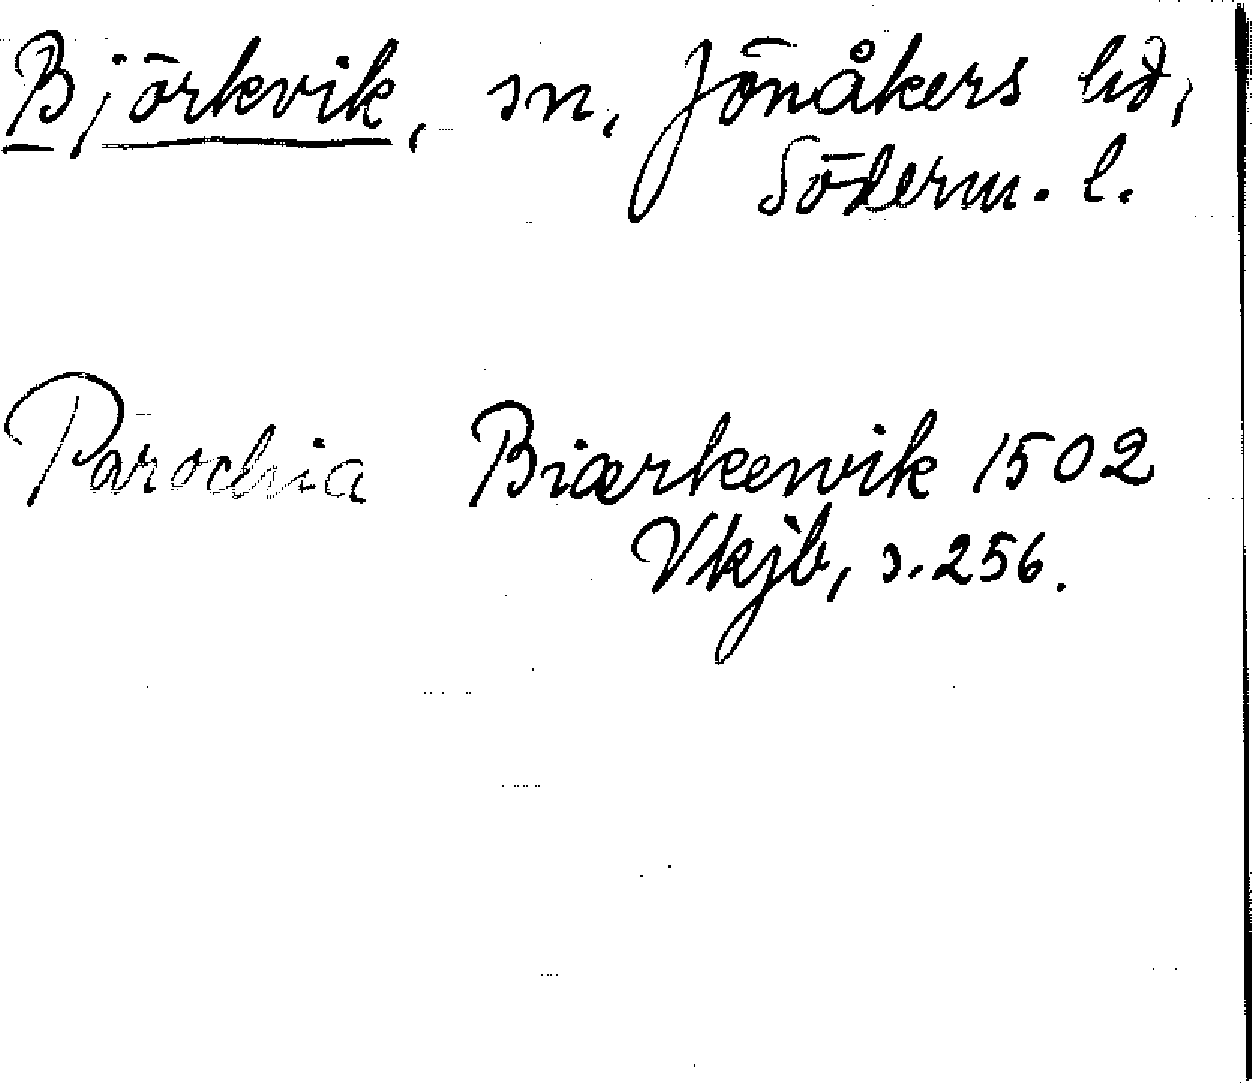 Björkvik, sn, Jönåkers hd,
Söderm. l.
Parochia Biærkewik 1502
Vkjb, s. 256.